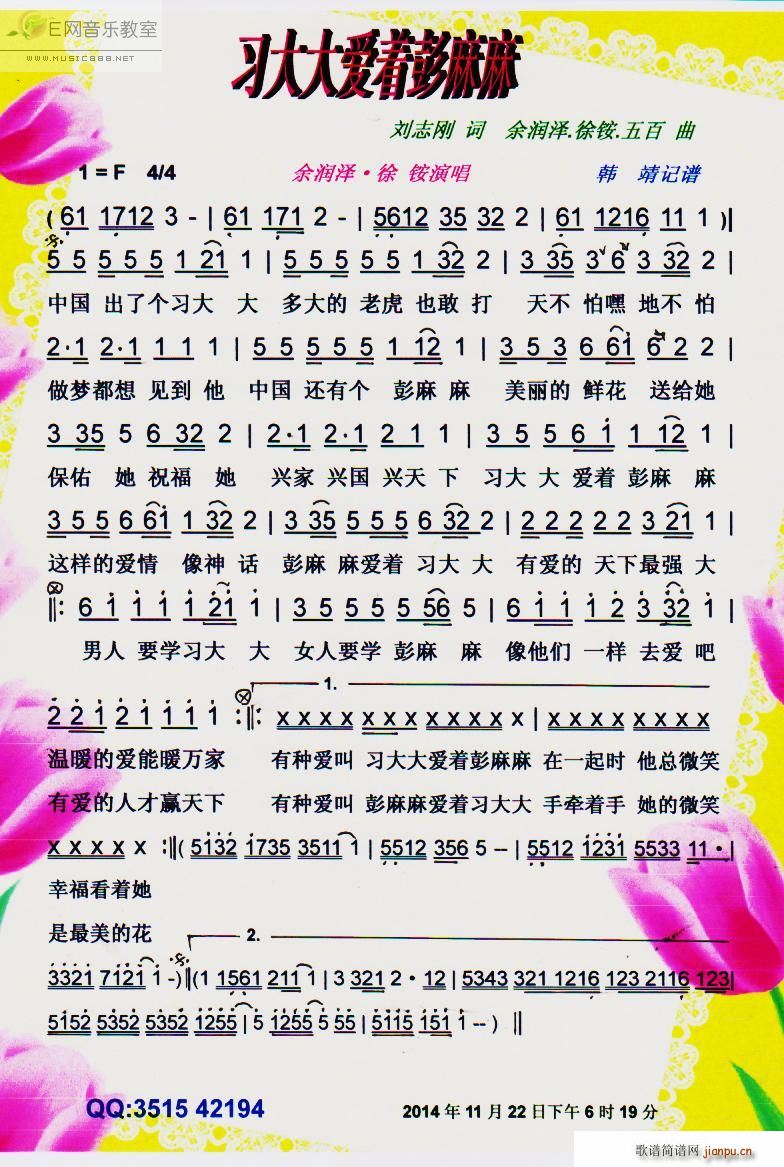 E网音乐教室
WWW.MUSIC888.NET
习大大爱着彭麻麻
刘志刚 词 余润泽.徐铵.五百 曲
1 = F 4/4 余润泽·徐 铵演唱 韩 靖记谱
( 61 1712 3 - | 61 171 2 - | 5612 35 32 2 | 61 1216 11 1 )|
5 5 5 5 5 1 21 1 | 5 5 5 5 5 1 32 2 | 3 35 3 6 3 32 2 |
中国 出了个习大 大 多大的 老虎 也敢 打 天不 怕嘿 地不 怕
2·1 2·1 1 1 1 | 5 5 5 5 5 1 12 1 | 3 5 3 6 61 6 2 2 |
做梦都想 见到 他 中国 还有个 彭麻 麻 美丽的 鲜花 送给她
3 35 5 6 32 2 | 2·1 2·1 2 1 1 | 3 5 5 6 1 1 12 1 |
保佑 她 祝福 她 兴家 兴国 兴天 下 习大 大 爱着 彭麻 麻
3 5 5 6 61 1 32 2 | 3 35 5 5 5 6 32 2 | 2 2 2 2 2 3 21 1 |
这样的爱情 像神 话 彭麻 麻爱着 习大 大 有爱的 天下最强 大
‖: 6 1 1 1 1 21 1 | 3 5 5 5 5 56 5 | 6 1 1 1 2 3 32 1 |
男人 要学习大 大 女人要学 彭麻 麻 像他们 一样 去爱 吧
1.
2 2 1 2 1 1 1 1 :‖: x x x x x x x x x x x x | x x x x x x x x
温暖的爱能暖万家 有种爱叫 习大大爱着彭麻麻 在一起时 他总微笑
有爱的人才赢天下 有种爱叫 彭麻麻爱着习大大 手牵着手 她的微笑
x x x x x :‖( 5132 1735 3511 1 | 5512 356 5 -- | 5512 1231 5533 11·|
幸福看着她
是最美的花
2.
3321 7121 1 -)‖(1 1561 211 1 | 3 321 2·12 | 5343 321 1216 123 2116 123|
5152 5352 5352 1255 | 5 1255 5 55 | 5115 151 1 --) ‖
QQ:3515 42194
2014 年 11 月 22 日下午 6 时 19 分
歌谱简谱网 jianpu.cn